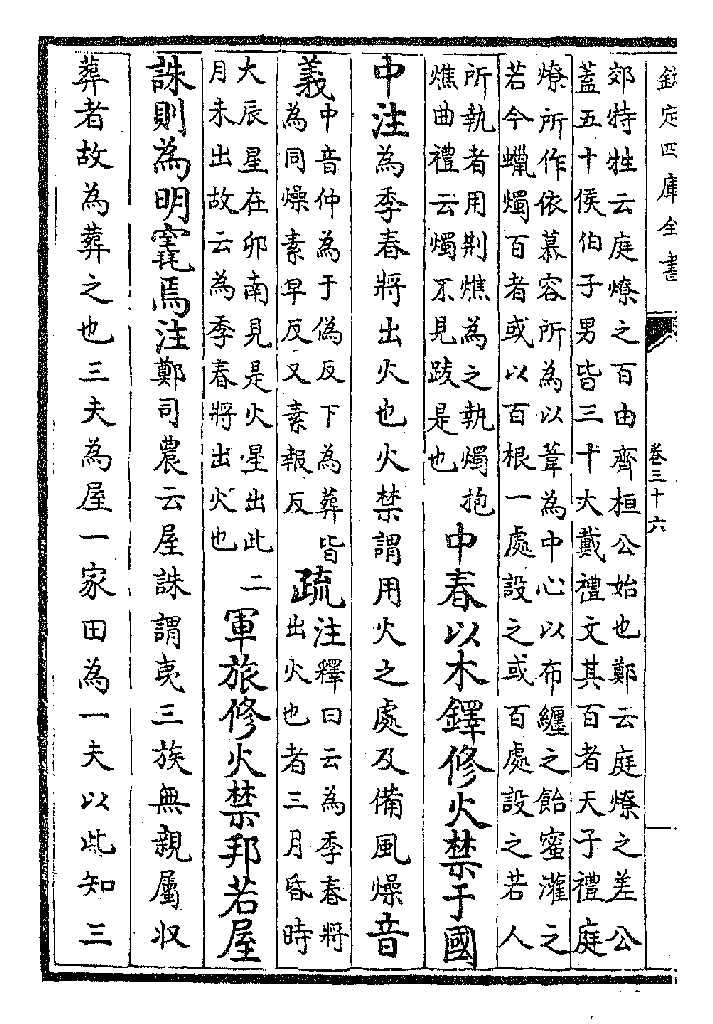 欽定四庫全書 卷三十六
郊特牲云庭燎之百由齊桓公始也鄭云庭燎之差公
蓋五十侯伯子男皆三十大戴禮文其百者天子禮庭
燎所作依慕容所為以葦為中心以布纏之飴蜜灌之
若今蠟燭百者或以百根一處設之或百處設之若人
所執者用荆燋為之執燭抱
燋曲禮云燭不見跋是也
中春以木鐸修火禁于國
中注為季春將出火也火禁謂用火之處及備風燥音
義
中音仲為于偽反下為葬皆
為同燥素早反又素報反
疏
注釋曰云為季春將
出火也者三月昏時
大辰星在卯南見是火星出此
月未出故云為季春將出火也
二
軍旅修火禁邦若屋
誅則為明竁焉注鄭司農云屋誅謂夷三族無親屬収
葬者故為葬之也三夫為屋一家田為一夫以此知三